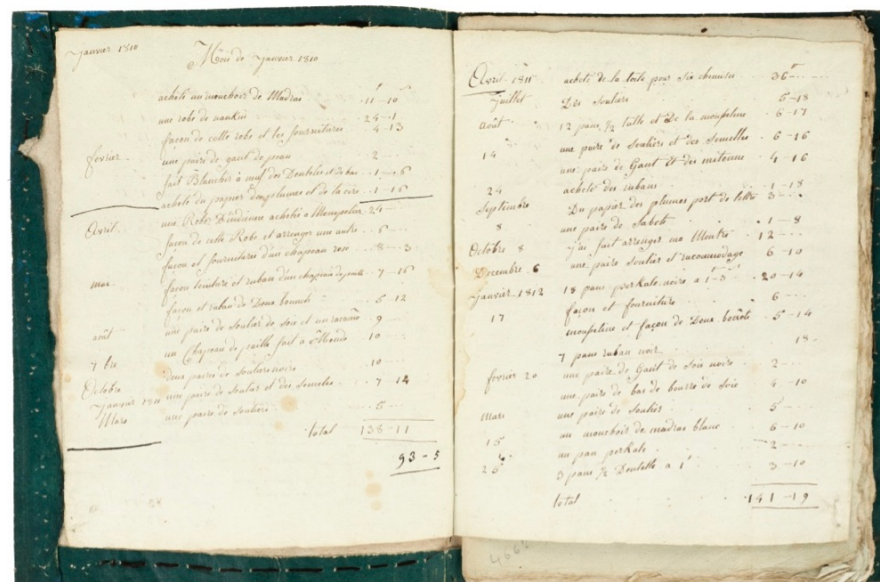 Janvier 1810
Mois de Janvier 1810
acheté un mouchoir de Madras 11 - 10
une robe de nankin 24 - 1
façon de cette robe et les fournitures 4 - 13
fevrier une paire de gant de peau 2
fait Blanchir a neuf des Dentelles et de bas 1 - 16
acheté du papier des plumes et de la cire 1 - 16
Avril une Robe D'indienne achetée a 24
façon de cette Robe et arranger une autre 6
façon et fourniture d'un chapeau rose 8 - 3
mai façon teinture et ruban d'un chapeau de paille 7 - 16
façon et ruban de Deux 5 - 12
une paire de soulier de soie et un 9
août un Chapeau de paille fait a 10
7bre deux paires de souliers noirs 10
Octobre une paire de soulier et des semelles 7 - 12
Janvier 1811
Mars une paire de souliers 5
total 138 - 11
93 - 5
Avril 1811 acheté de la toile pour six chemises 36
Juillet Des souliers 5 - 18
Août 12 pans 1/2 tulle et de la mousseline 6 - 17
14 une paire de souliers et des semelles 6 - 16
une paire de Gant et des mitaines 4 - 16
24 acheté des rubans 1 - 18
Septembre Du papier des plumes port de lettre 3
8 une paire de sabots 1 - 8
Octobre 8 j'ai fait arranger ma Montre 12
Decembre 6 une paire soulier et racommodage 6 - 10
Janvier 1812 18 pans perkale noire a 1 - 3 20 - 14
17 façon et fourniture 6
mousseline et façon de Deux 5 - 14
7 pans ruban noir 18
fevrier 20 une paire de Gant de soie noire 2
une paire de bas de bourre de soie 4 - 10
Mars une paire de soulier 5
15 un mouchoir de madras blanc 6 - 10
un pan perkale 2
25 3 pans 1/2 Dentelle a 1 3 - 10
total 141 - 19